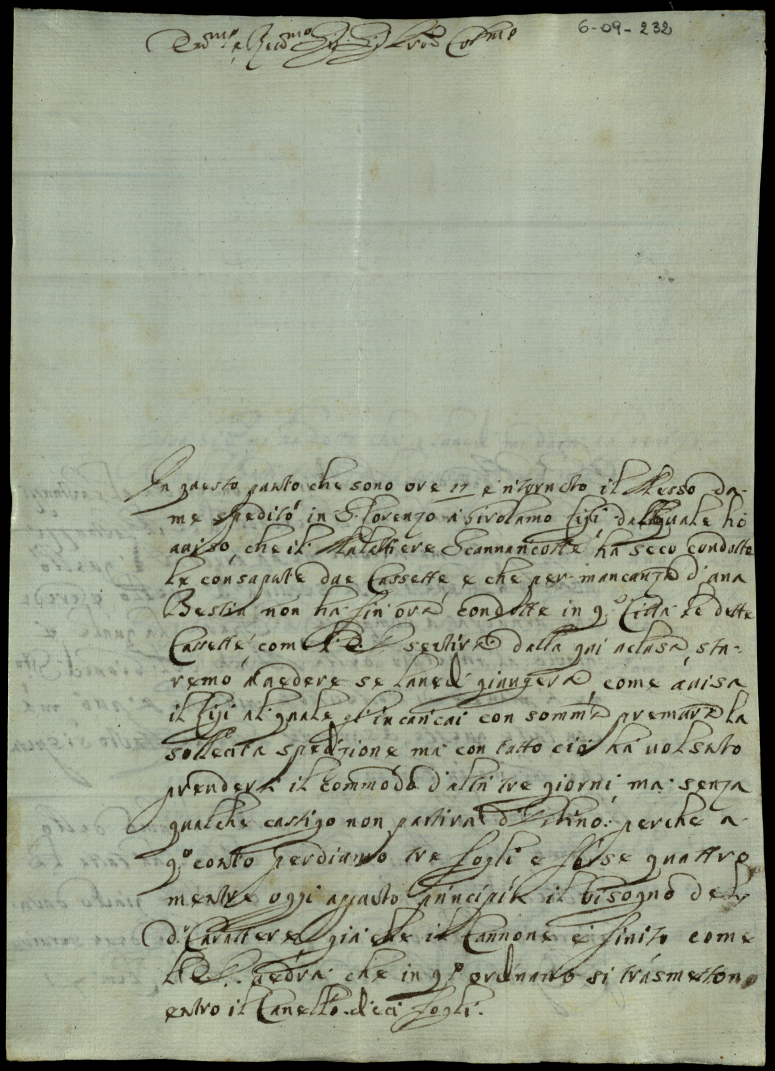 6-09-232
Ill.mo e Rev.mo Sig.r Sig.r Pron Col.mo
In questo punto che sono ore 17 è ritornato il Messo da
me spedito in S. Lorenzo à Girolamo Tisi dal quale hò
auiso, che il Mulattiere Scannancotte ha seco condotte
le consapute due Cassette e che per mancanza d'una
Bestia non ha fin'ora condotte in q.a Città le dette
Cassette come V. S. sentirà dalla qui aclusa sta-
remo à uedere se lunedì giungerà come auisa
il Tisi al quale gl'incaricai con somma premura la
sollecita spedizione ma con tutto ciò hà uolsuto
prendersi il commodo d'altri tre giorni ma senza
qualche castigo non partirà d'Urbino: perche a
q.o conto perdiamo tre fogli e forse quattro
mentre oggi apunto principia il bisogno del
d.o Carattere già che il Cannone è finito come
V. S. uedrà che in q.o ordinario si trasmettono
entro il Canello dieci fogli.